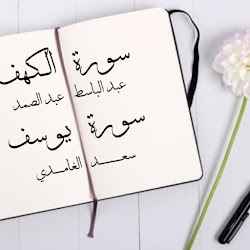 سورة الكهف
عبد الباسط عبد الصمد
سورة يوسف
سعد الغامدي